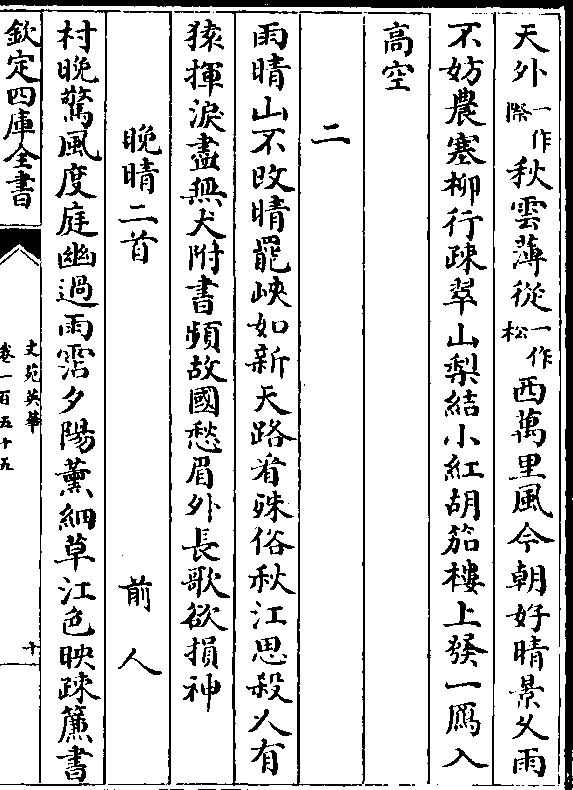 天外一作際秋雲薄從一作松西萬里風今朝好晴景乆雨
不妨農塞柳行疎翠山梨結小紅胡笳樓上發一鴈入
高空
二
雨晴山不改晴罷峽如新天路㸔殊俗秋江思殺人有
猿揮淚盡無犬附書頻故國愁眉外長歌欲損神
晚晴二首 前人
村晚驚風度庭幽過雨霑夕陽薰細草江色映疎簾書
欽定四庫全書
文苑英華
卷一百五十五
十